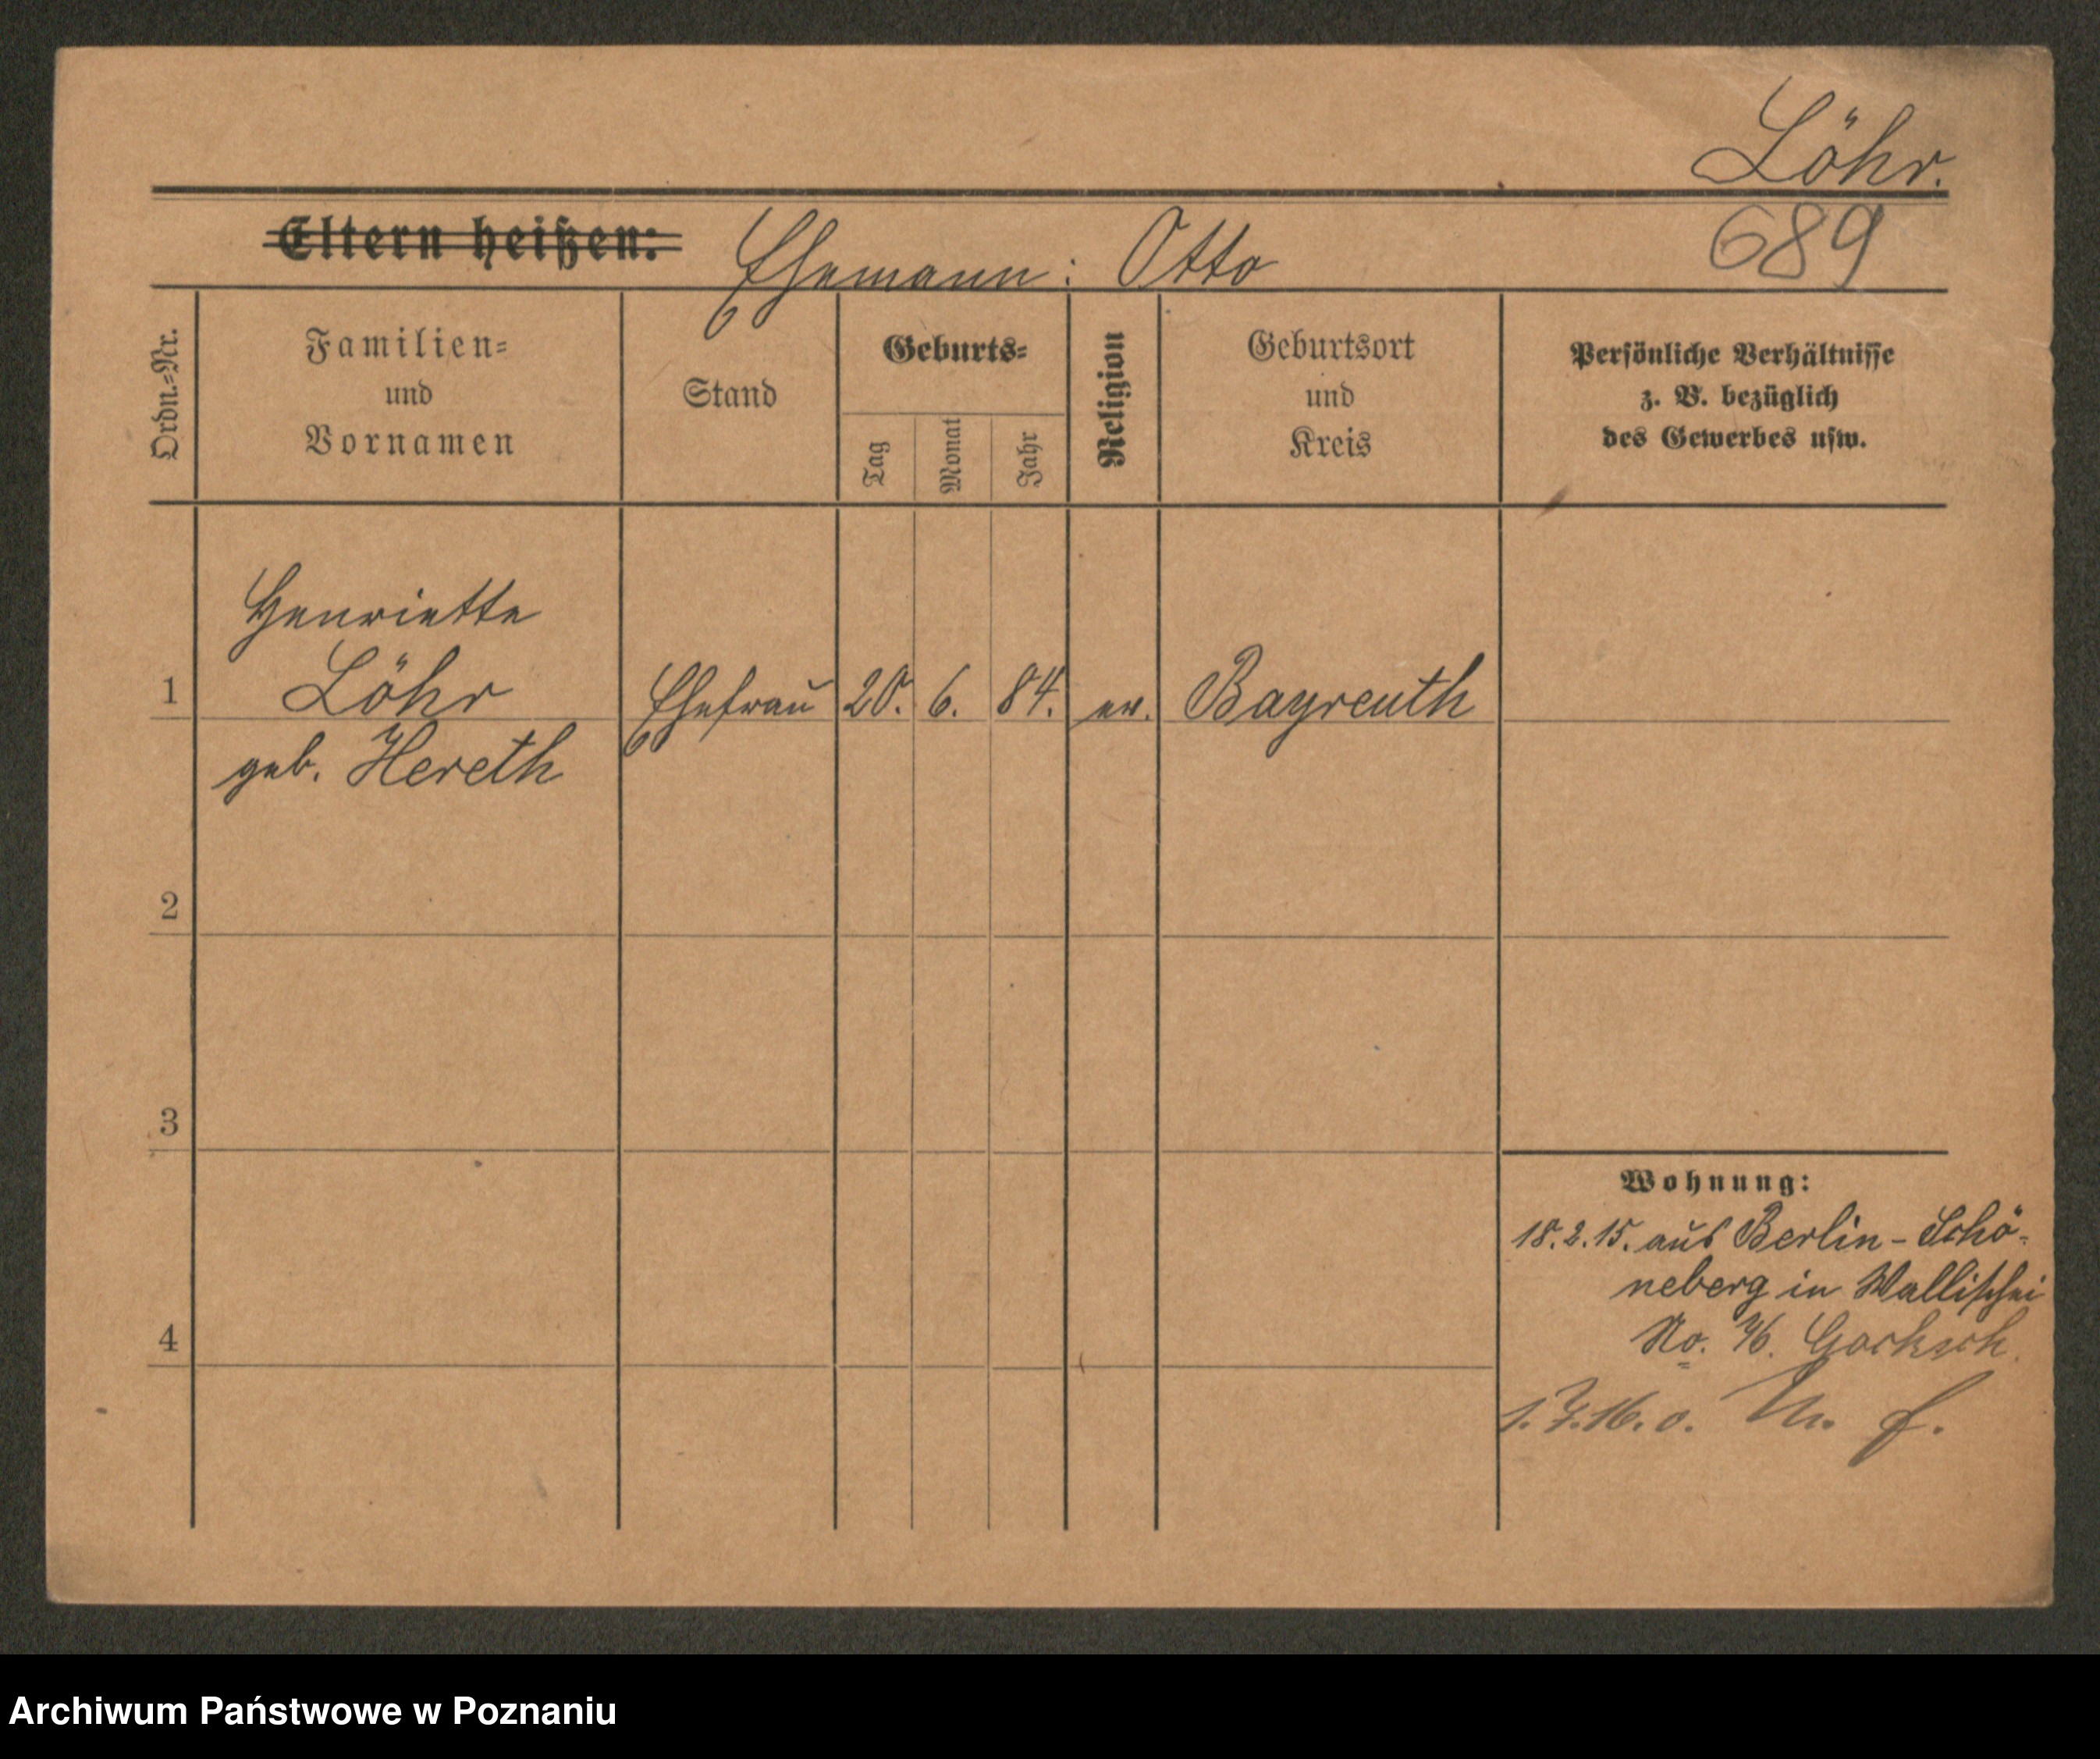 Löhr.
689
Eltern heißen: Ehemann: Otto
Ordn.-Nr.
Familien-
und
Vornamen
Stand
Geburts-
Tag
Monat
Jahr
Religion
Geburtsort
und
Kreis
Persönliche Verhältnisse
z. B. bezüglich
des Gewerbes usw.
Henriette
1 Löhr Ehefrau 20. 6. 84. ev. Bayreuth
geb. Hereth
2
3
4
Wohnung:
18.2.15. aus Berlin-Schö-
neberg in Wallischei
No. 76.
1.7.16. o.
Archiwum Państwowe w Poznaniu